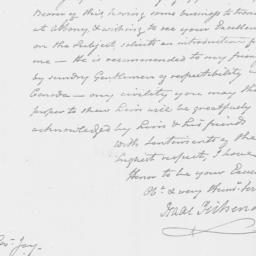 Bearer of this, having some business to trans
at Albany, & wishing to see your Excellen
on the Subject, solicits an introduction f
me — He is recommended to my frien
by sundry Gentlemen of respectibility
Canada — any civility you may thi
proper to shew him will be greatfully
acknowledged by him & his friends
With Sentiments of the
highest respect, I have
Honor to be your Excel
Obt. & very Humb. Ser
Isaac
Jay.